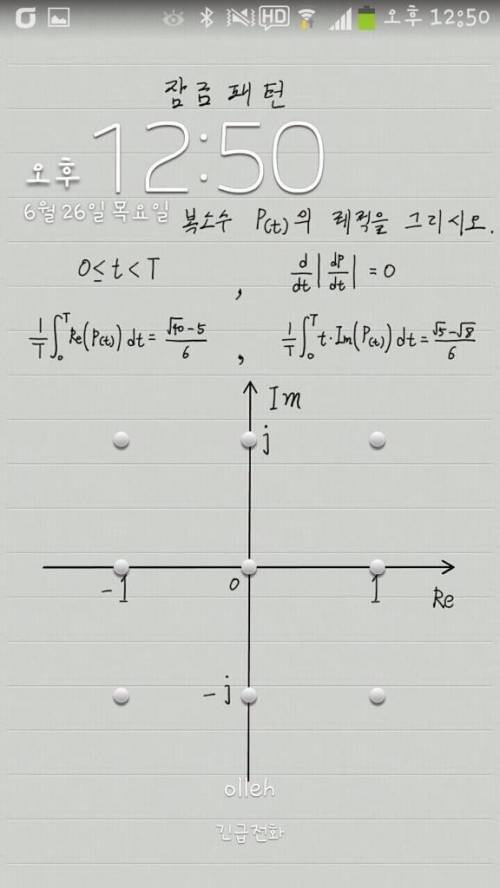 HD 오후 12:50
잠금패턴
오후 12:50
6월 26일 목요일
복소수 P(t)의 궤적을 그리시오.
0≤t<T , d/dt |dP/dt| = 0
1/T ∫₀ᵀ Re(P(t)) dt = (√40-5)/6 , 1/T ∫₀ᵀ t·Im(P(t)) dt = (√5-√8)/6
Im
j
-1 0 1
Re
-j
olleh
긴급전화